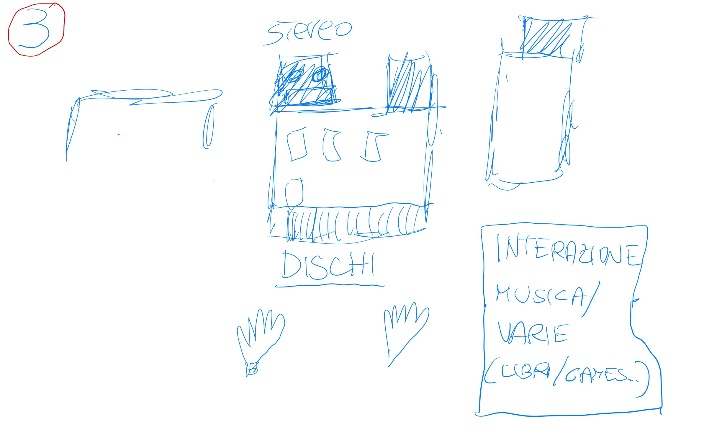 3
Stereo
DISCHI
INTERAZIONE
MUSICA/
VARIE
(LIBRI/GAMES..)